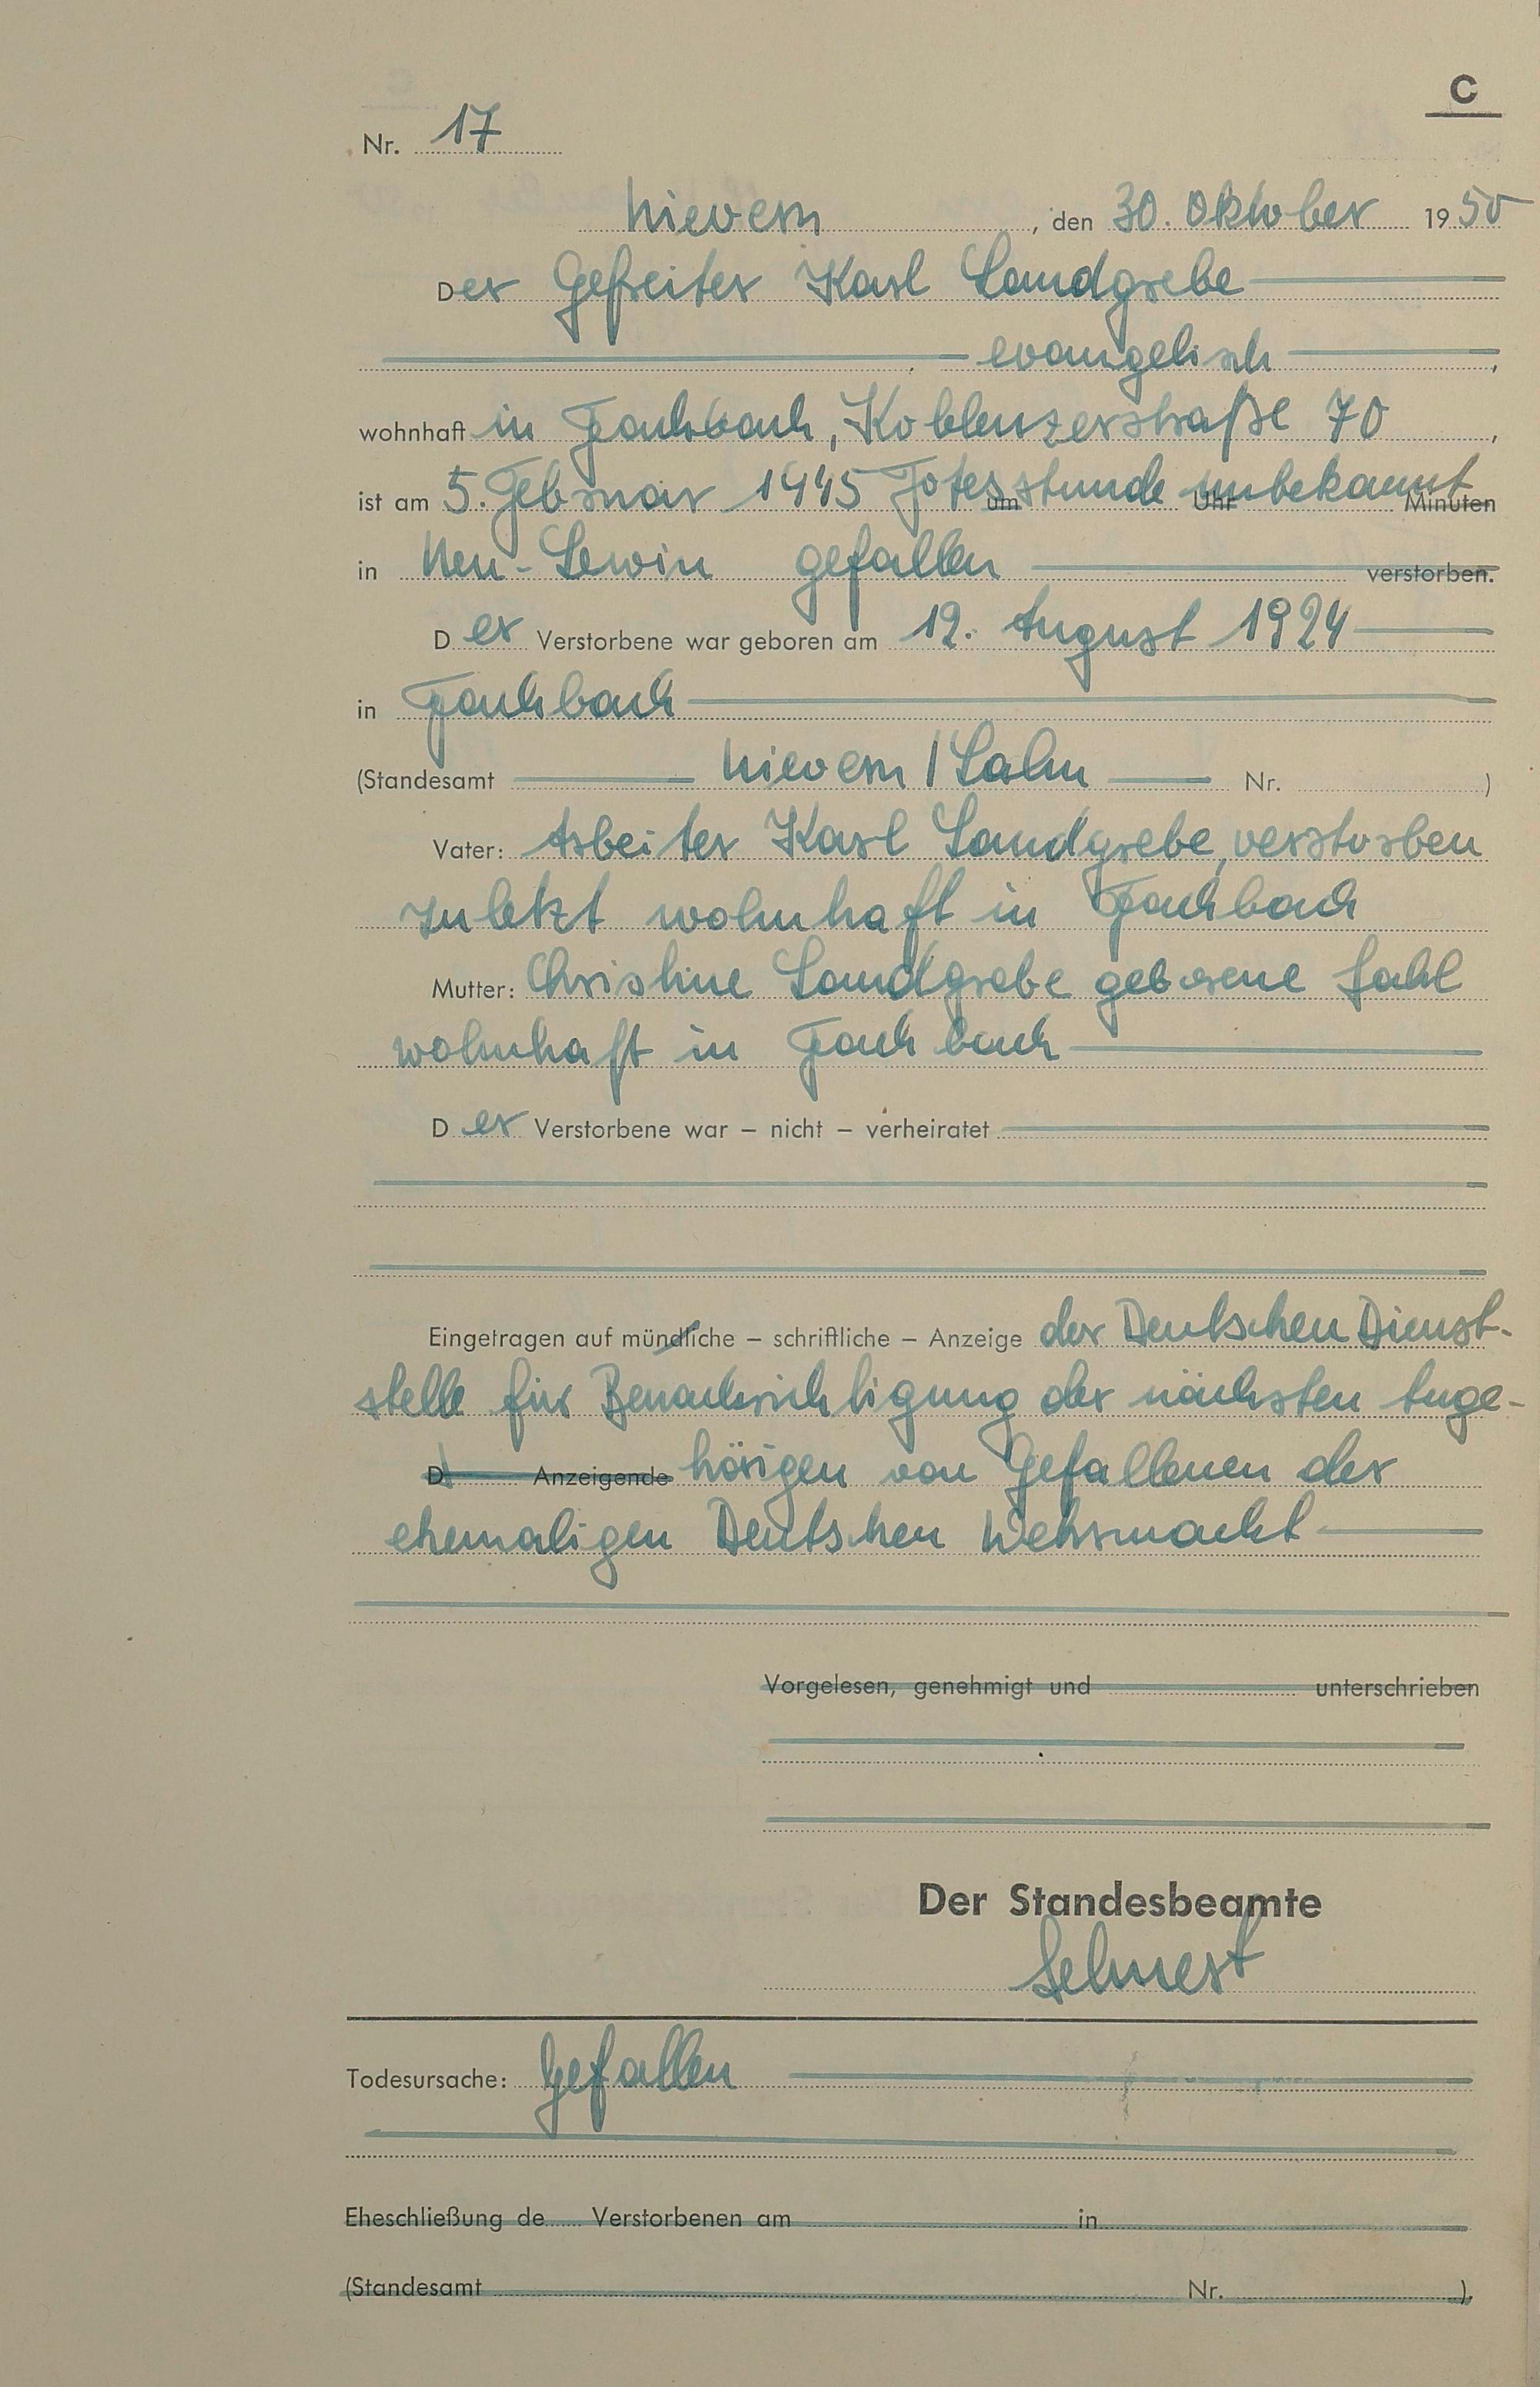 C
Nr. 17
Nievern, den 30. Oktober 1950
Der Gefreiter Karl Landgrebe
evangelisch,
wohnhaft in Fachbach, Koblenzerstraße 70,
ist am 5. Februar 1945 Todesstunde um Uhr unbekannt Minuten
in Neu-Lewin gefallen verstorben.
Der Verstorbene war geboren am 12. August 1924
in Fachbach
(Standesamt Nievern / Lahn Nr. )
Vater: Arbeiter Karl Landgrebe, verstorben
zuletzt wohnhaft in Fachbach
Mutter: Christine Landgrebe geborene
wohnhaft in Fachbach
Der Verstorbene war – nicht – verheiratet
Eingetragen auf mündliche – schriftliche – Anzeige der Deutschen Dienst-
stelle für Benachrichtigung der nächsten Ange-
D Anzeigende hörigen von Gefallenen der
ehemaligen Deutschen Wehrmacht
Vorgelesen, genehmigt und unterschrieben
Der Standesbeamte
Todesursache: Gefallen
Eheschließung de Verstorbenen am in
(Standesamt Nr. )